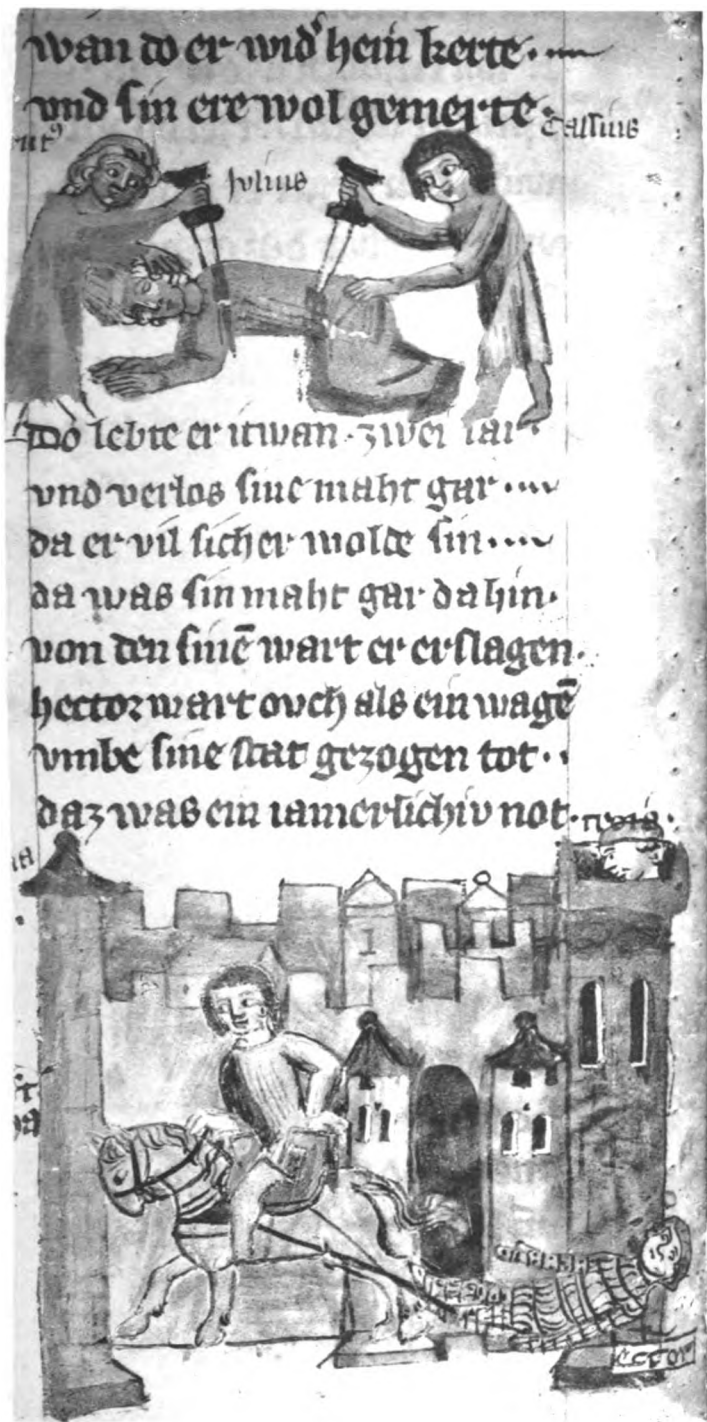 wan do er wid᾽ hein kerte·
vnd sin ere wol gemerte·
Cassius
Julius
Do lebte er itwan·zwei iar·
vnd verlos sine maht gar···
da er vil sicher wolde sin····
da was sin maht gar dahin·
von den sinē wart er erslagen·
hector wart ovch als ein wagē
vmbe sine stat gezogen tot··
daz was ein iamerlichiv not·
ector